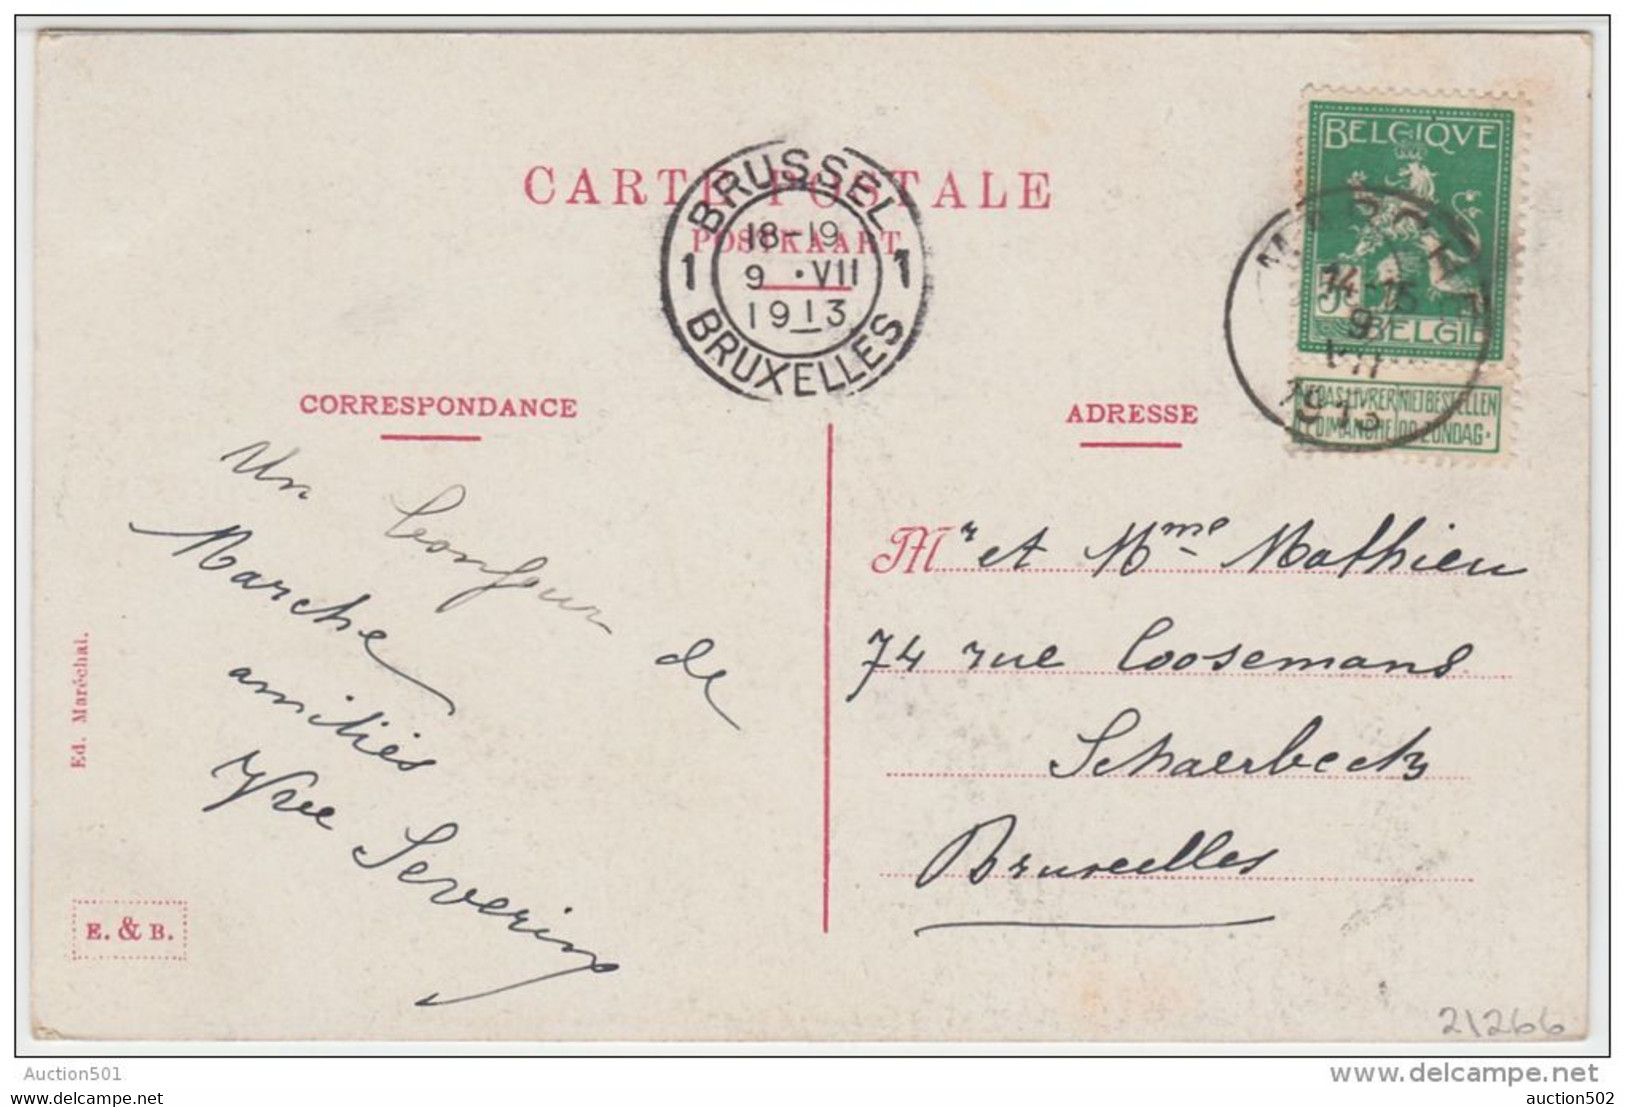 CARTE POSTALE
POSTKAART
BRUSSEL
1 18-19 1
9 • VII
1913
BRUXELLES
BELGIQVE
5
BELGIË
NE PAS LIVRER NIET BESTELLEN
LE DIMANCHE OP ZONDAG.
MARCHE
14-15
9
VII
1913
CORRESPONDANCE
ADRESSE
Un bonjour de
Marche
amitiés
Yvee Severin
Mr et Mme Mathieu
74 rue Coosemans
Schaerbeek
Bruxelles
Ed. Maréchal.
E. & B.
21266
Auction501
www.delcampe.net
auction502
auction502